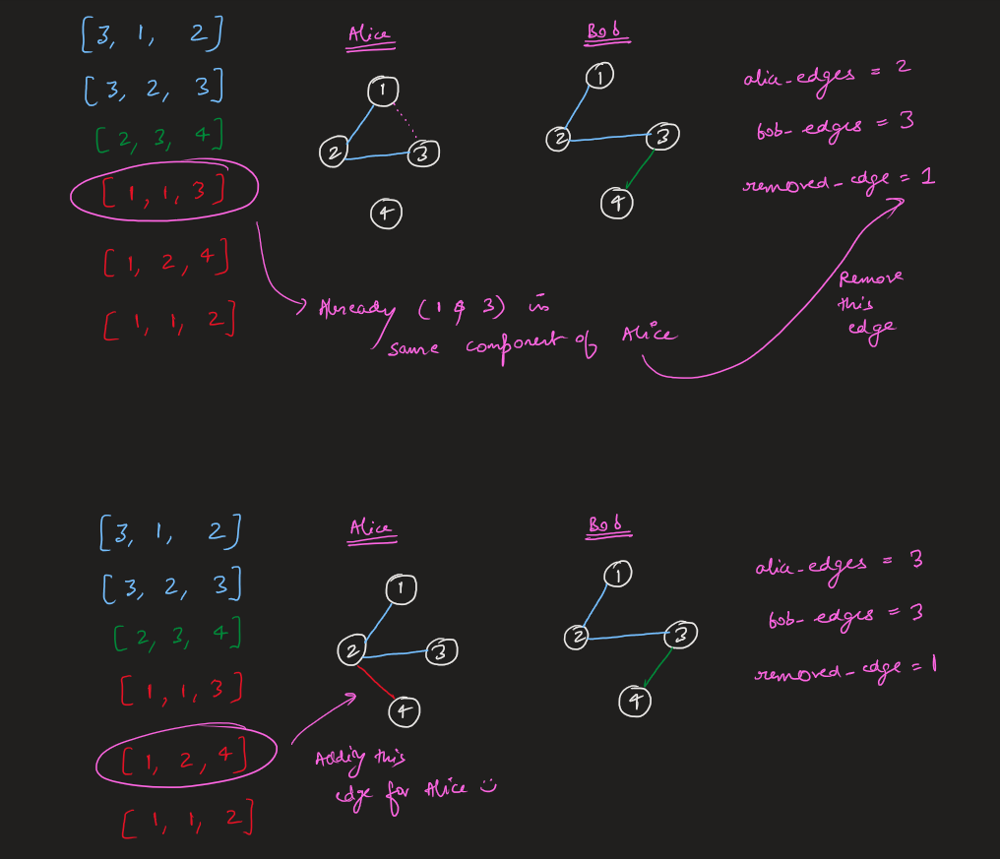 [3, 1, 2]
[3, 2, 3]
[2, 3, 4]
[1, 1, 3]
[1, 2, 4]
[1, 1, 2]
Alice
1
2
3
4
Bob
1
2
3
4
alia-edges = 2
bob-edges = 3
removed-edge = 1
Already (1 & 3) is
same component of Alice
Remove
this
edge
[3, 1, 2]
[3, 2, 3]
[2, 3, 4]
[1, 1, 3]
[1, 2, 4]
[1, 1, 2]
Alice
1
2
3
4
Adding this
edge for Alice :)
Bob
1
2
3
4
alia-edges = 3
bob-edges = 3
removed-edge = 1